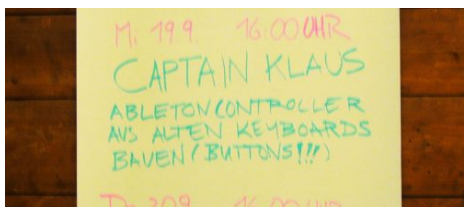 Mi 19.9. 16:00 UHR
CAPTAIN KLAUS
ABLETON CONTROLLER
AUS ALTEN KEYBOARDS
BAUEN (BUTTONS!!!)
16:00 UHR